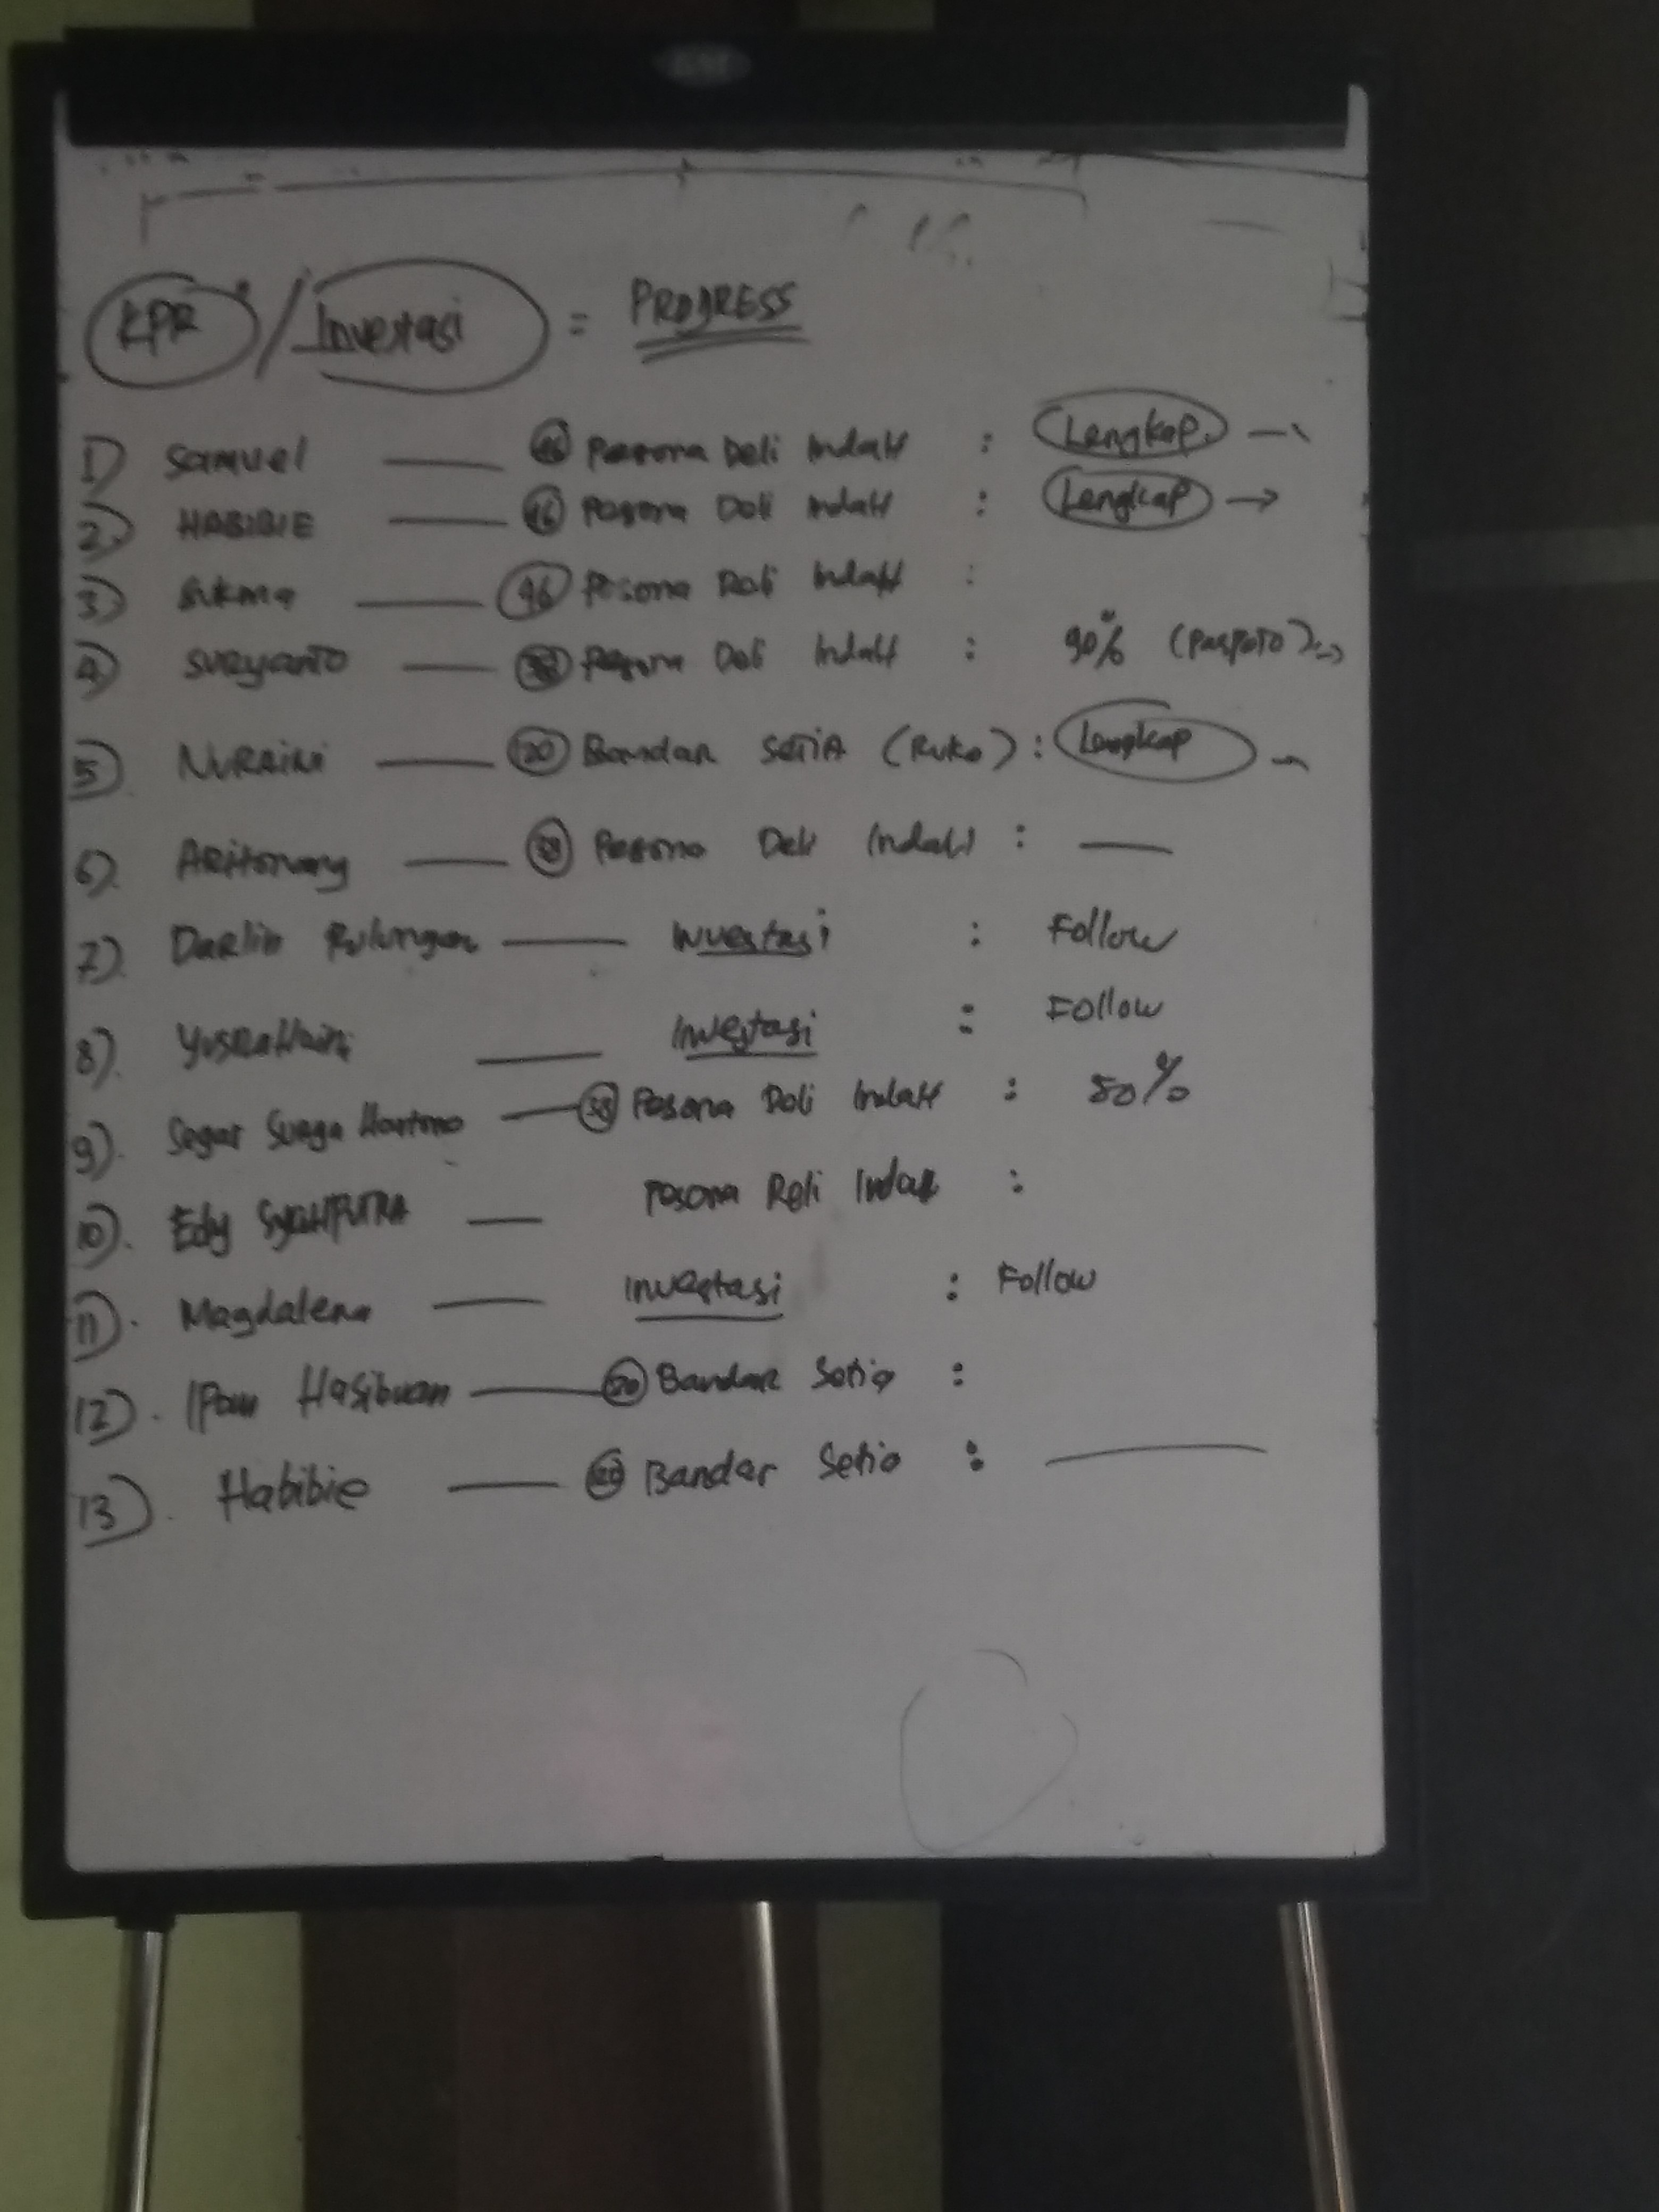 KPR / Investasi = PROGRESS
1) Samuel — 46 Pesona Deli Indah : Lengkap.
2) HABIBIE — 46 Pesona Deli Indah : Lengkap →
3) Sukma — 46 Pesona Deli Indah :
4) Suryanto — Pesona Deli Indah : 90% (Pasfoto) →
5) NURAINI — 120 Bandar SETIA (Ruko) : Lengkap
6) ARitonang — 38 Pesona Deli Indah : —
7) Darlin — Investasi : Follow
8) — Investasi : Follow
9) Segar Hartono — 38 Pesona Deli Indah : 50%
10). Edy SYAHPUTRA — Pesona Deli Indah :
11). Magdalena — Investasi : Follow
12). Hasibuan — Bandar Setia :
13). Habibie — Bandar Setia : —